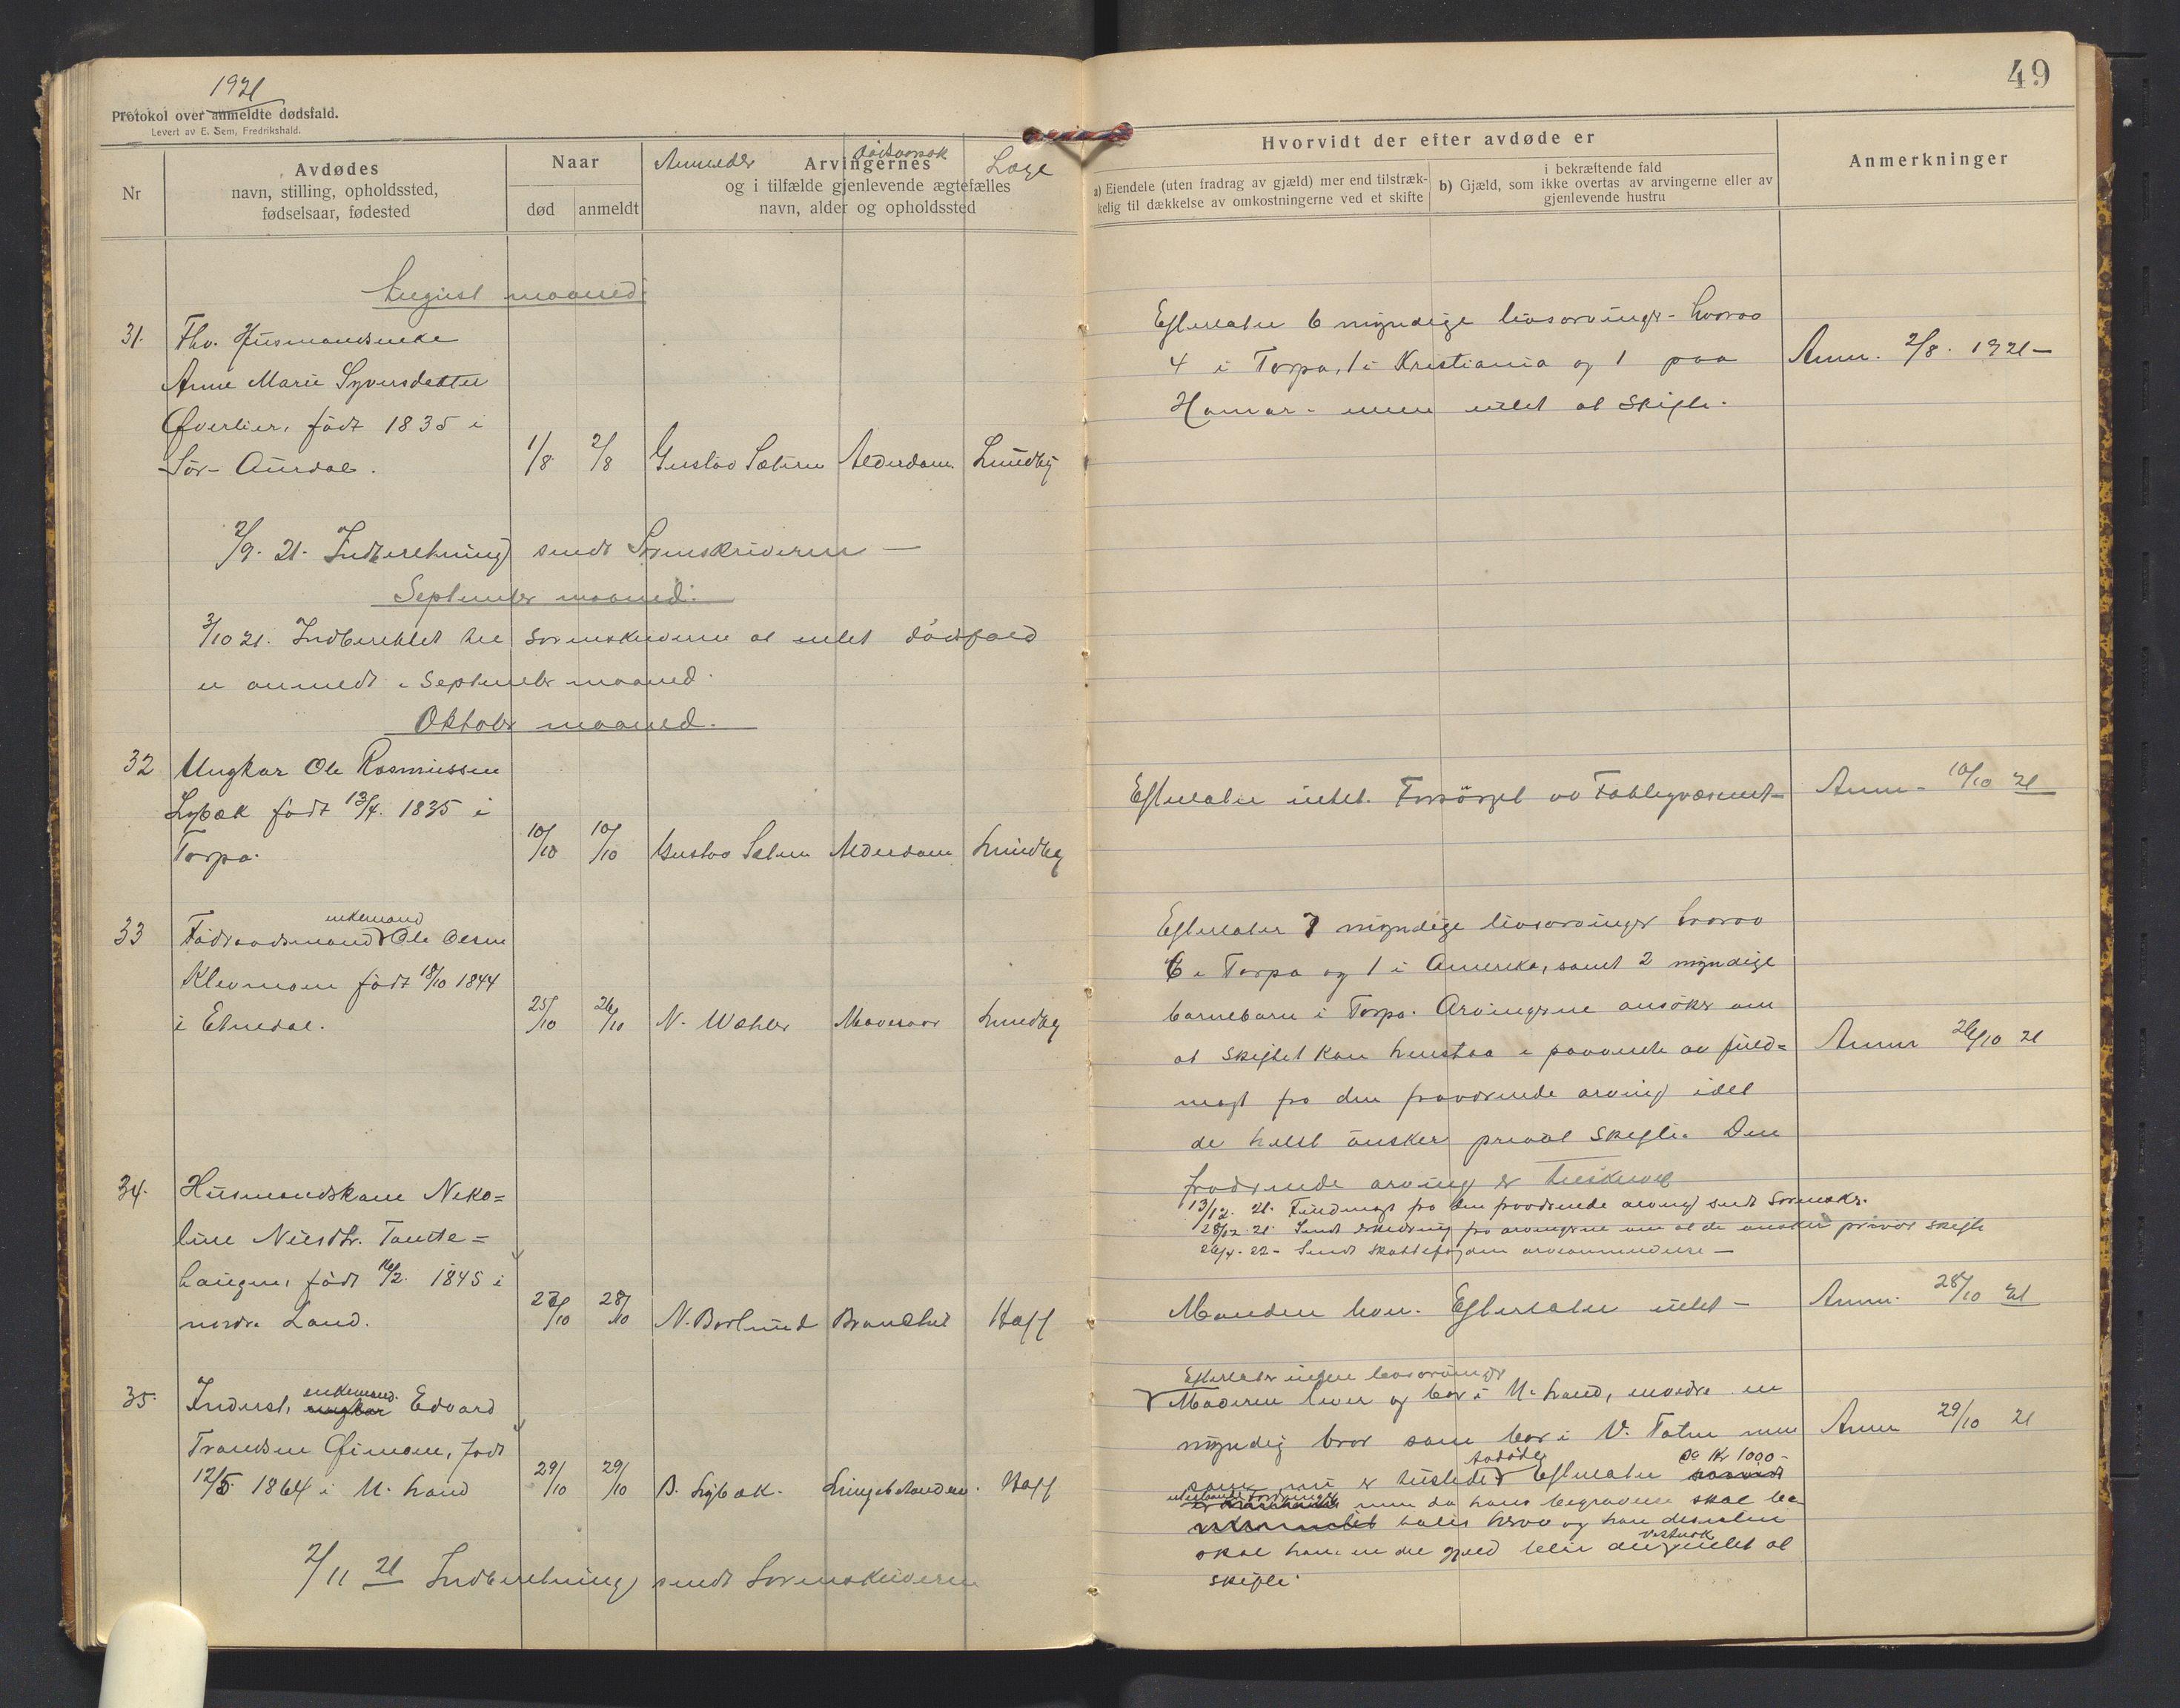 1921
Protokol over anmeldte dødsfald.
Levert av E. Sem, Fredrikshald.
49
Nr
Avdødes
navn, stilling, opholdssted,
fødselsaar, fødested
Naar
død
anmeldt
Anmelder
Dødsaarsak
Læge
Arvingernes
og i tilfælde gjenlevende ægtefælles
navn, alder og opholdssted
Hvorvidt der efter avdøde er
a) Eiendele (uten fradrag av gjæld) mer end tilstræk-
kelig til dækkelse av omkostningerne ved et skifte
i bekræftende fald
b) Gjæld, som ikke overtas av arvingerne eller av
gjenlevende hustru
Anmerkninger
August maaned:
31. Fhv. Husmandsenke
Anne Marie Syversdatter
Øverlier, født 1835 i
Sør-Aurdal. 1/8 2/8 Gustav Sæteren Alderdom Lundby
Efterlater 6 myndige livsarvinger - hvorav
4 i Torpa, 1 i Kristiania og 1 paa
Hamar - men intet at skifte.
Anm. 2/8. 1921 -
2/9. 21. Indberetning sendt Sorenskriveren -
September maaned:
3/10 21. Indberettet til sorenskriveren at intet dødsfald
er anmeldt i September maaned.
Oktober maaned.
32 Ungkar Ole Rasmussen
Lybæk født 13/4. 1835 i
Torpa. 10/10 10/10 Gustav Sæteren Alderdom Lundby
Efterlater intet. Forsørget av Fattigvæsenet -
Anm - 10/10 21
33 Føderaadsmand enkemand Ole Olsen
Klevmoen født 18/10 1844
i Etnedal. 25/10 26/10 N. Wæhler Mavesaar Lundby
Efterlater 7 myndige livsarvinger hvorav
6 i Torpa og 1 i Amerika, samt 2 myndige
barnebarn i Torpa. Arvingerne ansøker om
at skiftet kan henstaa i paavente av fuld=
magt fra den fraværende arving idet
de helst ønsker privat skifte. Den
fraværende arving er tilskrevet
Anm 26/10 21
13/12. 21. Fuldmagt fra den fraværende arving sendt Sorenskr.
28/12. 21. Sendt erklæring fra arvingerne om at de ønsker privat skifte
26/4. 22 - Sendt skattefogden arveanmeldelse -
34. Husmandskone Niko=
line Nilsdtr. Tomte=
haugen, født 16/2. 1845 i
nordre Land. 27/10 28/10 N. Borlund Bronchit Hoff
Manden lever. Efterlater intet -
Anm. 28/10 21
35 Inderst, enkemand ungkar Edvard
Trondsen Øimoen, født
12/5. 1864 i N. Land 29/10 29/10 B. Lybæk. Lungebetændelse. Hoff
Efterlater ingen livsarvinger
Moderen lever og bor i N. Land, endvidre en
myndig bror som bor i V. Toten men
som nu er tilstede Avdøde Efterlater ca Kr 1000 -
men da hans begravelse skal be=
tales herav og han desuten
skal ha en del gjæld blir det vistnok intet at
skifte.
Anm 29/10 21
2/11 21 Indberetning sendt Sorenskriveren